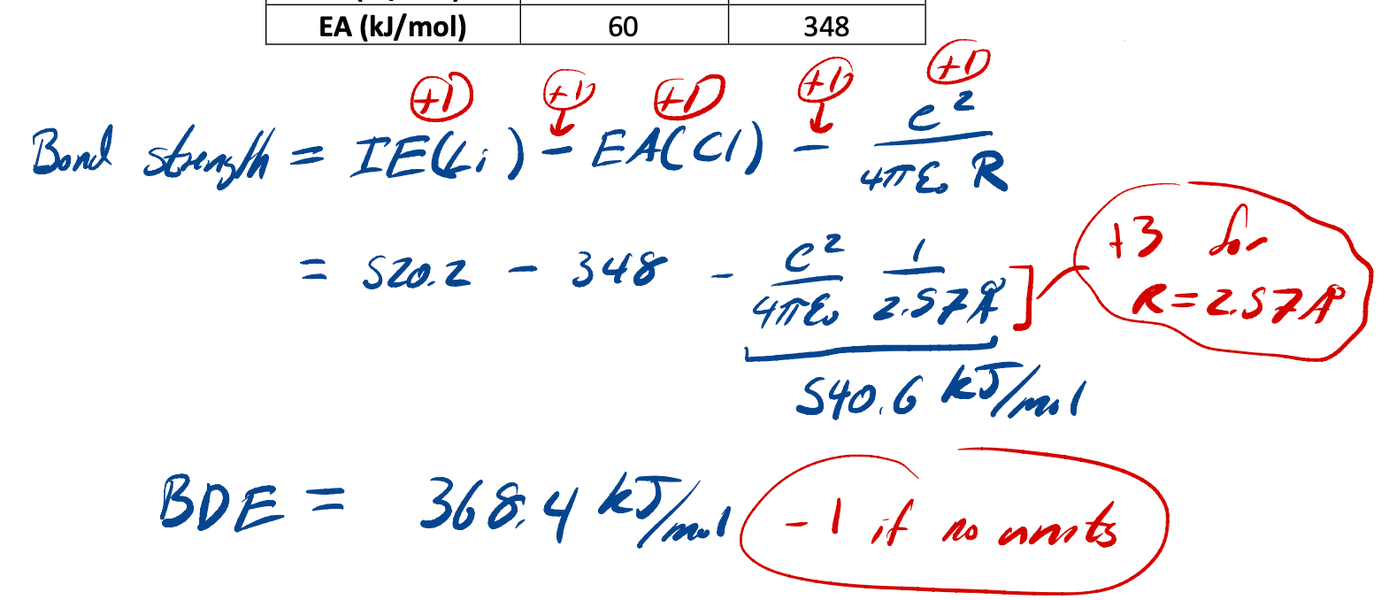 EA (kJ/mol) 60 348
+1 +1 +1 +1 +1
Bond strength = IE(Li) - EA(Cl) - e² / 4πε₀ R
= 520.2 - 348 - e² / 4πε₀ 1 / 2.57Å ] +3 for
R = 2.57Å
540.6 kJ/mol
BDE = 368.4 kJ/mol -1 if no units